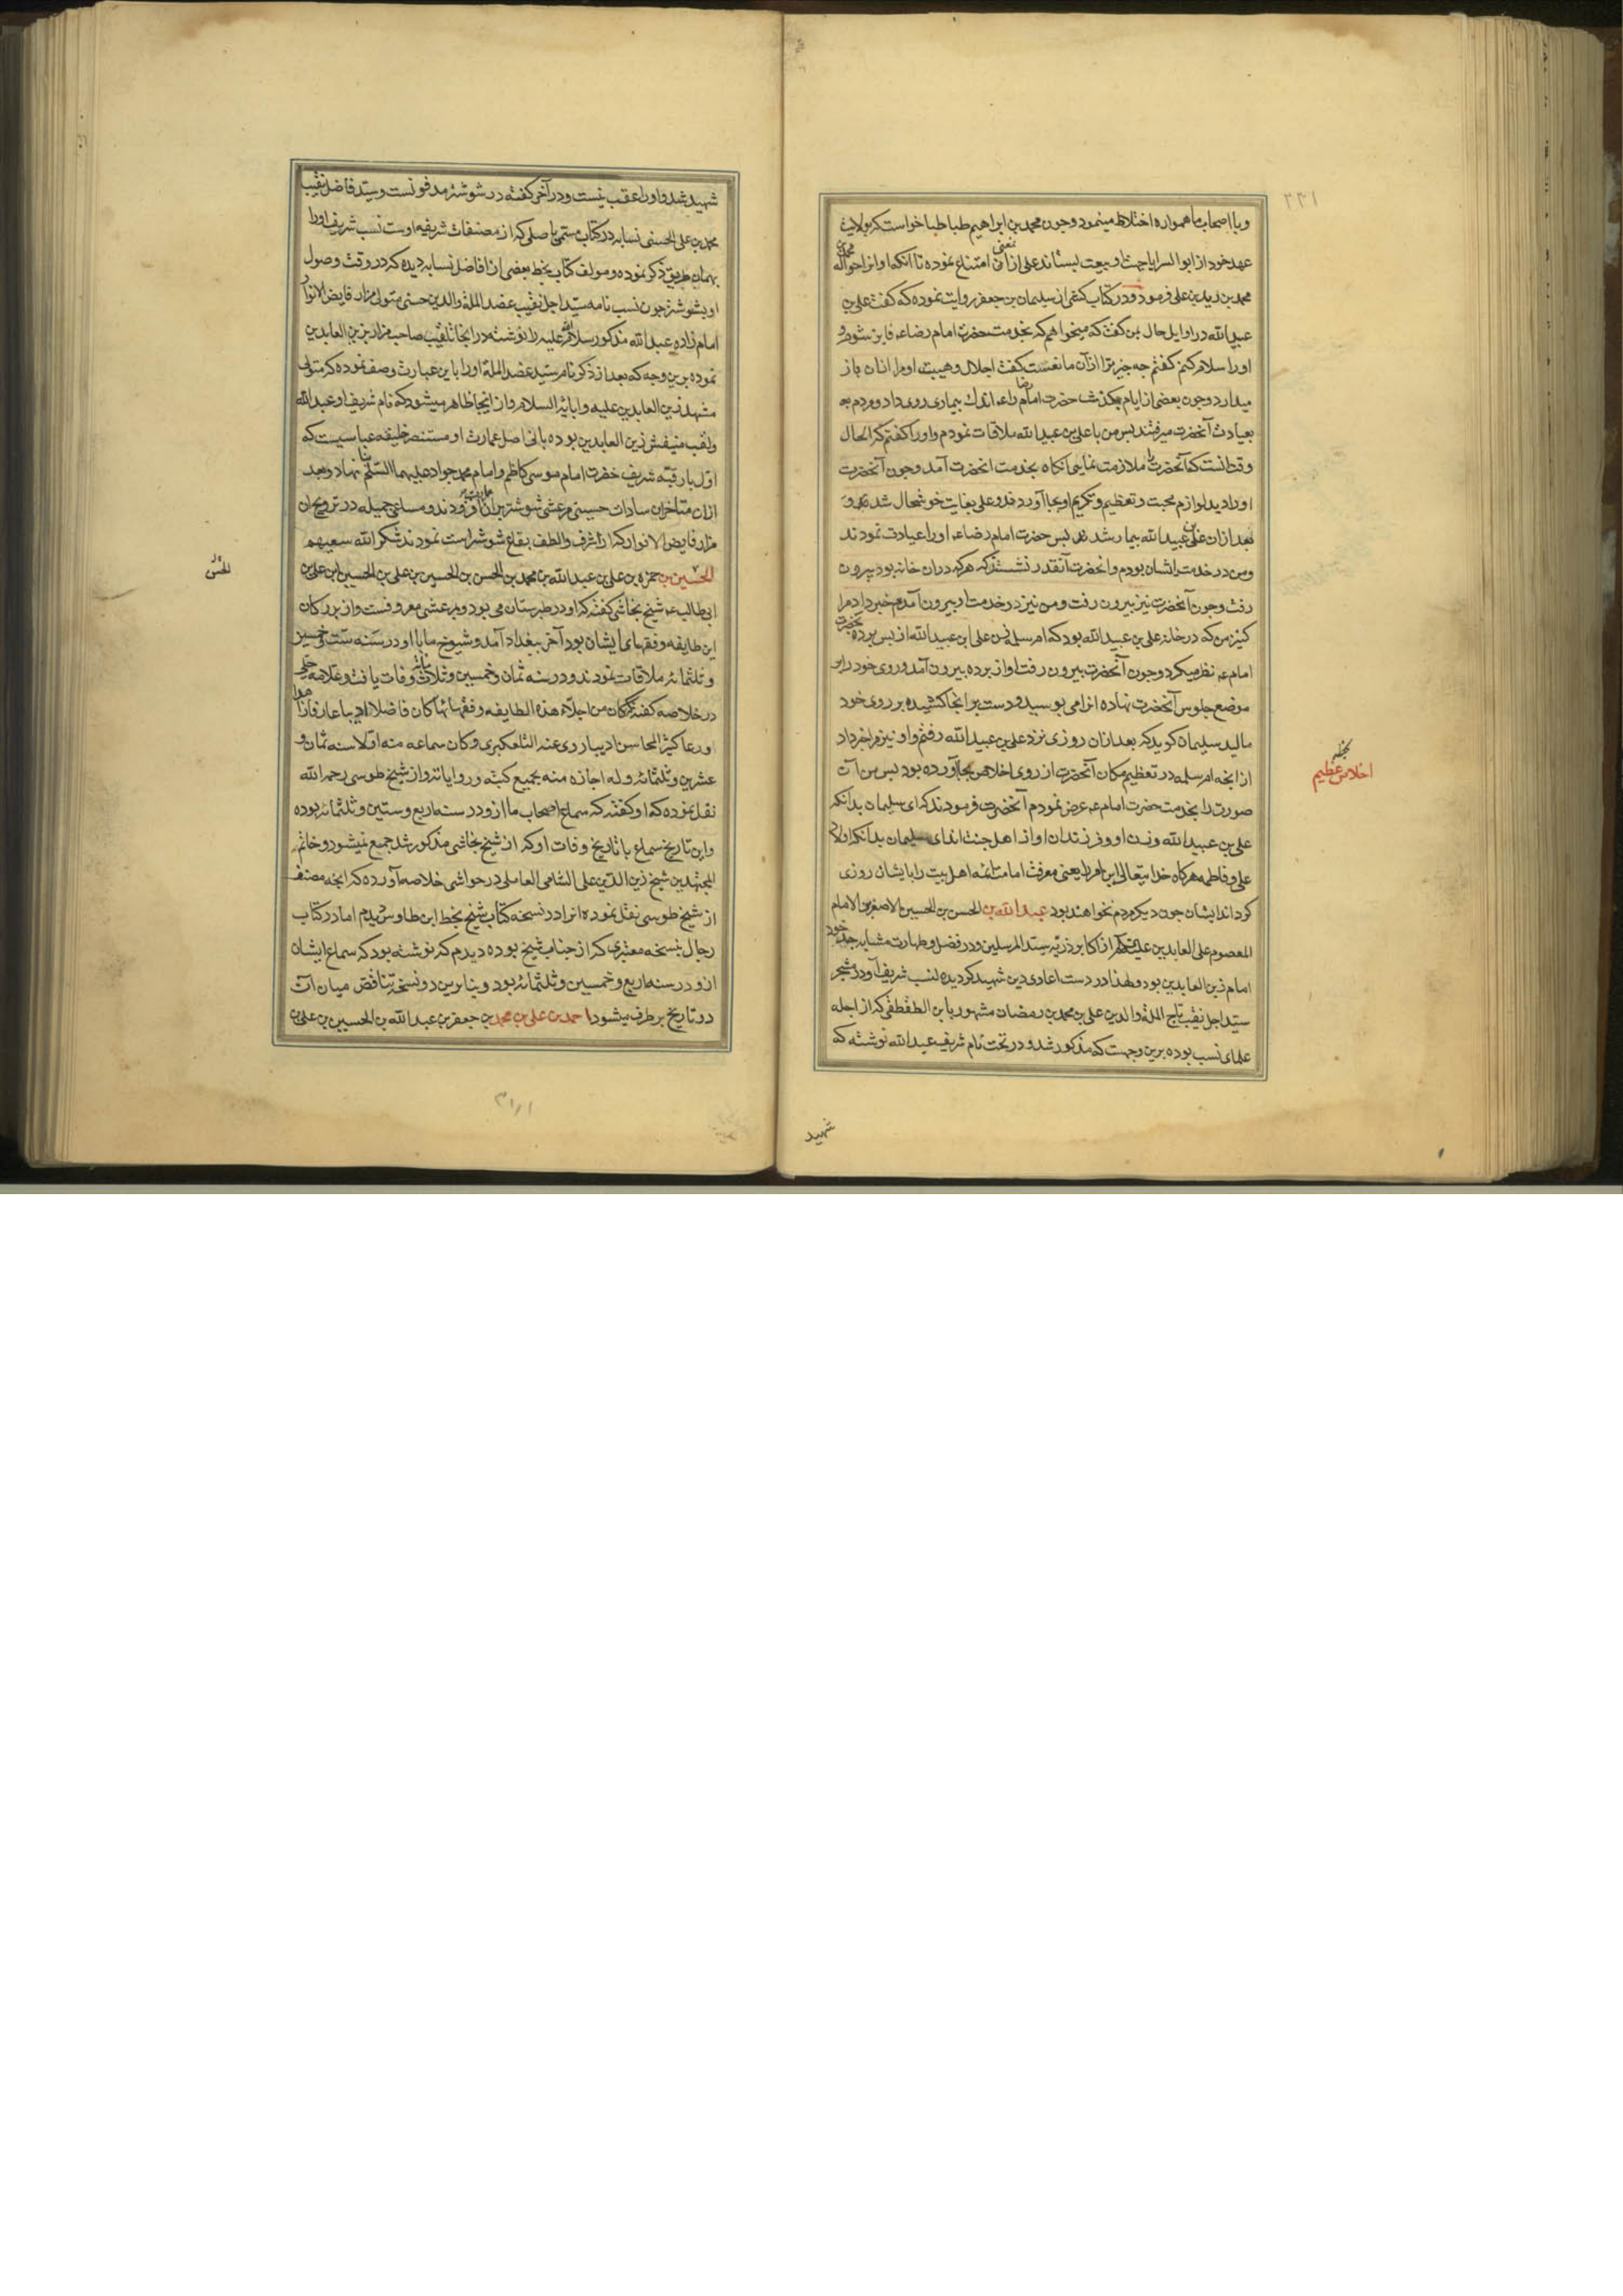 ۲۳۱
و با اصحاب ما همواره اختلاط مینمود و چون محمد بن ابراهیم طباطبا خواست که بولایت
عهد خود از ابو السرایا جهت او بیعت بستاند علی از آن معنی امتناع نموده تا آنکه او انرا حواله محمد بن
محمد بن زید بن علی فرمود و در کتاب کشی از سلیمان بن جعفر روایت نموده که گفت علی بن
عبید الله در اوایل حال بمن گفت که میخواهم که بخدمت حضرت امام رضاء فایز شوم و
او را سلام کنم گفتم چه چیز ترا از آن مانعست گفت اجلال و هیبت او مرا از ان باز
میدارد و چون بعضی از ایام بگذشت حضرت امام رضا را اندك بیماری روی داد و مردم به
بعیادت آنحضرت میرفتند پس من با علی بن عبید الله ملاقات نمودم و او را گفتم که الحال
وقتانست که آنحضرت را ملازمت نمایی آنکاه بخدمت انحضرت آمد و چون آنحضرت
او را دید لوازم محبت و تعظیم و تکریم او بجا آوردند و علی بغایت خوشحال شد
بعد از ان علی بن عبید الله بیمار شد پس حضرت امام رضاء او را عیادت نمودند
و من در خدمت ایشان بودم و انحضرت آنقدر نشستند که هر که در ان خانه بود بیرون
رفت و چون آنحضرت نیز بیرون رفت و من نیز در خدمت او بیرون آمدم خبر داد مرا
کنیز من که در خانه علی بن عبید الله بود که ام سلمه زن علی ابن عبید الله از پس پرده بحضرت
امام ع نظر میکرد و چون آنحضرت بیرون رفت او از پرده بیرون آمد و روی خود را بر
موضع جلوس آنحضرت نهاده انرا می بوسید و دست بر انجا کشیده بر روی خود
مالید سلیمان گوید که بعد از ان روزی نزد علی بن عبید الله رفتم و او نیز مرا خبر داد
از انچه ام سلمه در تعظیم مکان آنحضرت از روی اخلاص بجا آورده بود پس من آن
صورت را بخدمت حضرت امام ع عرض نمودم آنحضرت فرمودند که ای سلیمان بدانکه
علی بن عبید الله و زن او و فرزندان او از اهل جنت اند ای سلیمان بدانکه اولاد
علی و فاطمه هر کاه خدایتعالی این امر را یعنی معرفت امامت ائمه اهل بیت را بایشان روزی
کرداند ایشان چون دیکر مردم نخواهند بود عبد الله بن الحسن بن الحسین الاصغر بن الامام
المعصوم علی العابدین علیهم از اکابر ذریه سید المرسلین و در فضل و طهارت مشابه جد خود
امام زین العابدین بود و لهذا در دست اعادی دین شهید کردیده نسب شریف او در مشجر
سید اجل نقیب تاج الملة و الدین علی بن محمد بن رمضان مشهور بابن الطقطقی که از اجله
علمای نسب بوده برین وجهست که مذکور شد و در تحت نام شریف عبد الله نوشته که
شهید
بخطه
اخلاص عظیم
شهید شد و او را عقب نیست و در آخر گفته در شوشتر مدفونست و سید فاضل نقیب
محمد بن علی الحسنی نسابه در کتاب مسمی باصلی که از مصنفات شریفه اوست نسب شریف او را
بهمان طریق ذکر نموده و مولف کتاب بخط بعضی از افاضل نسابه دیده که در وقت وصول
او بشوشتر چون نسب نامه سید اجل نقیب عضد الملة والدین حسنی متولی مزار فایض الانوار
امام زاده عبد الله مذکور سلام الله علیه را نوشته در انجا تلقیب صاحب مزار بزین العابدین
نموده برین وجه که بعد از ذکر نام سید عضد الملة او را باین عبارت وصف نموده که متولی
مشهد زین العابدین علیه و ابائه السلام و از اینجا ظاهر میشود که نام شریف او عبد الله
و لقب منیفش زین العابدین بوده بانی اصل عمارت او مستنصر خلیفه عباسیست که
اول بار قبه شریف حضرت امام موسی کاظم و امام محمد جواد علیهما السلم بنا نهاد و بعد
از ان متاخران سادات حسینی مرعشی شوشتر بران افزودند و مساعی جمیله در ترویج ان
مزار فایض الانوار که اشرف و الطف بقاع شوشتر است نمودند شکر الله سعیهم
الحسین بن حمزه بن علی بن عبد الله بن محمد بن الحسن بن الحسین بن علی بن الحسین ابن علی بن
الحسن
ابی طالب ع شیخ نجاشی گفته که او در طبرستان می بود و بمرعشی معروفست و از بزرکان
این طایفه و فقهای ایشان بود آخر ببغداد آمد و شیوخ ما با او در سنه ست و خمسین
و ثلثمائه ملاقات نمودند و در سنه ثمان و خمسین و ثلاث مائه وفات یافت و علامه حلی
در خلاصه گفته که کان من اجلاء هذه الطایفه و فقهائها کان فاضلا ادیبا عارفا زاهدا
ورعا کثیر المحاسن ادیبا روی عنه التلعکبری و کان سماعه منه اولا سنه ثمان و
عشرین و ثلثمائه و له اجازه منه بجمیع کتبه و روایاته و از شیخ طوسی رحمه الله
نقل نموده که او گفته که سماع اصحاب ما ازو در سنه اربع و ستین و ثلثمائه بوده
و این تاریخ سماع با تاریخ وفات او که از شیخ نجاشی مذکور شد جمع نمیشود و خاتم
المجتهدین شیخ زین الدین علی الشامی العاملی در حواشی خلاصه آورده که انچه مصنف
از شیخ طوسی نقل نموده انرا در نسخه کتاب شیخ بخط ابن طاوس دیدم اما در کتاب
رجال بنسخه معتبری که از جناب شیخ بوده دیدم که نوشته بود که سماع ایشان
ازو در سنه اربع و خمسین و ثلثمائه بود و بنابرین دو نسخه تناقض میان آن
دو تاریخ بر طرف میشود احمد بن علی بن محمد بن جعفر بن عبد الله بن الحسین بن علی بن